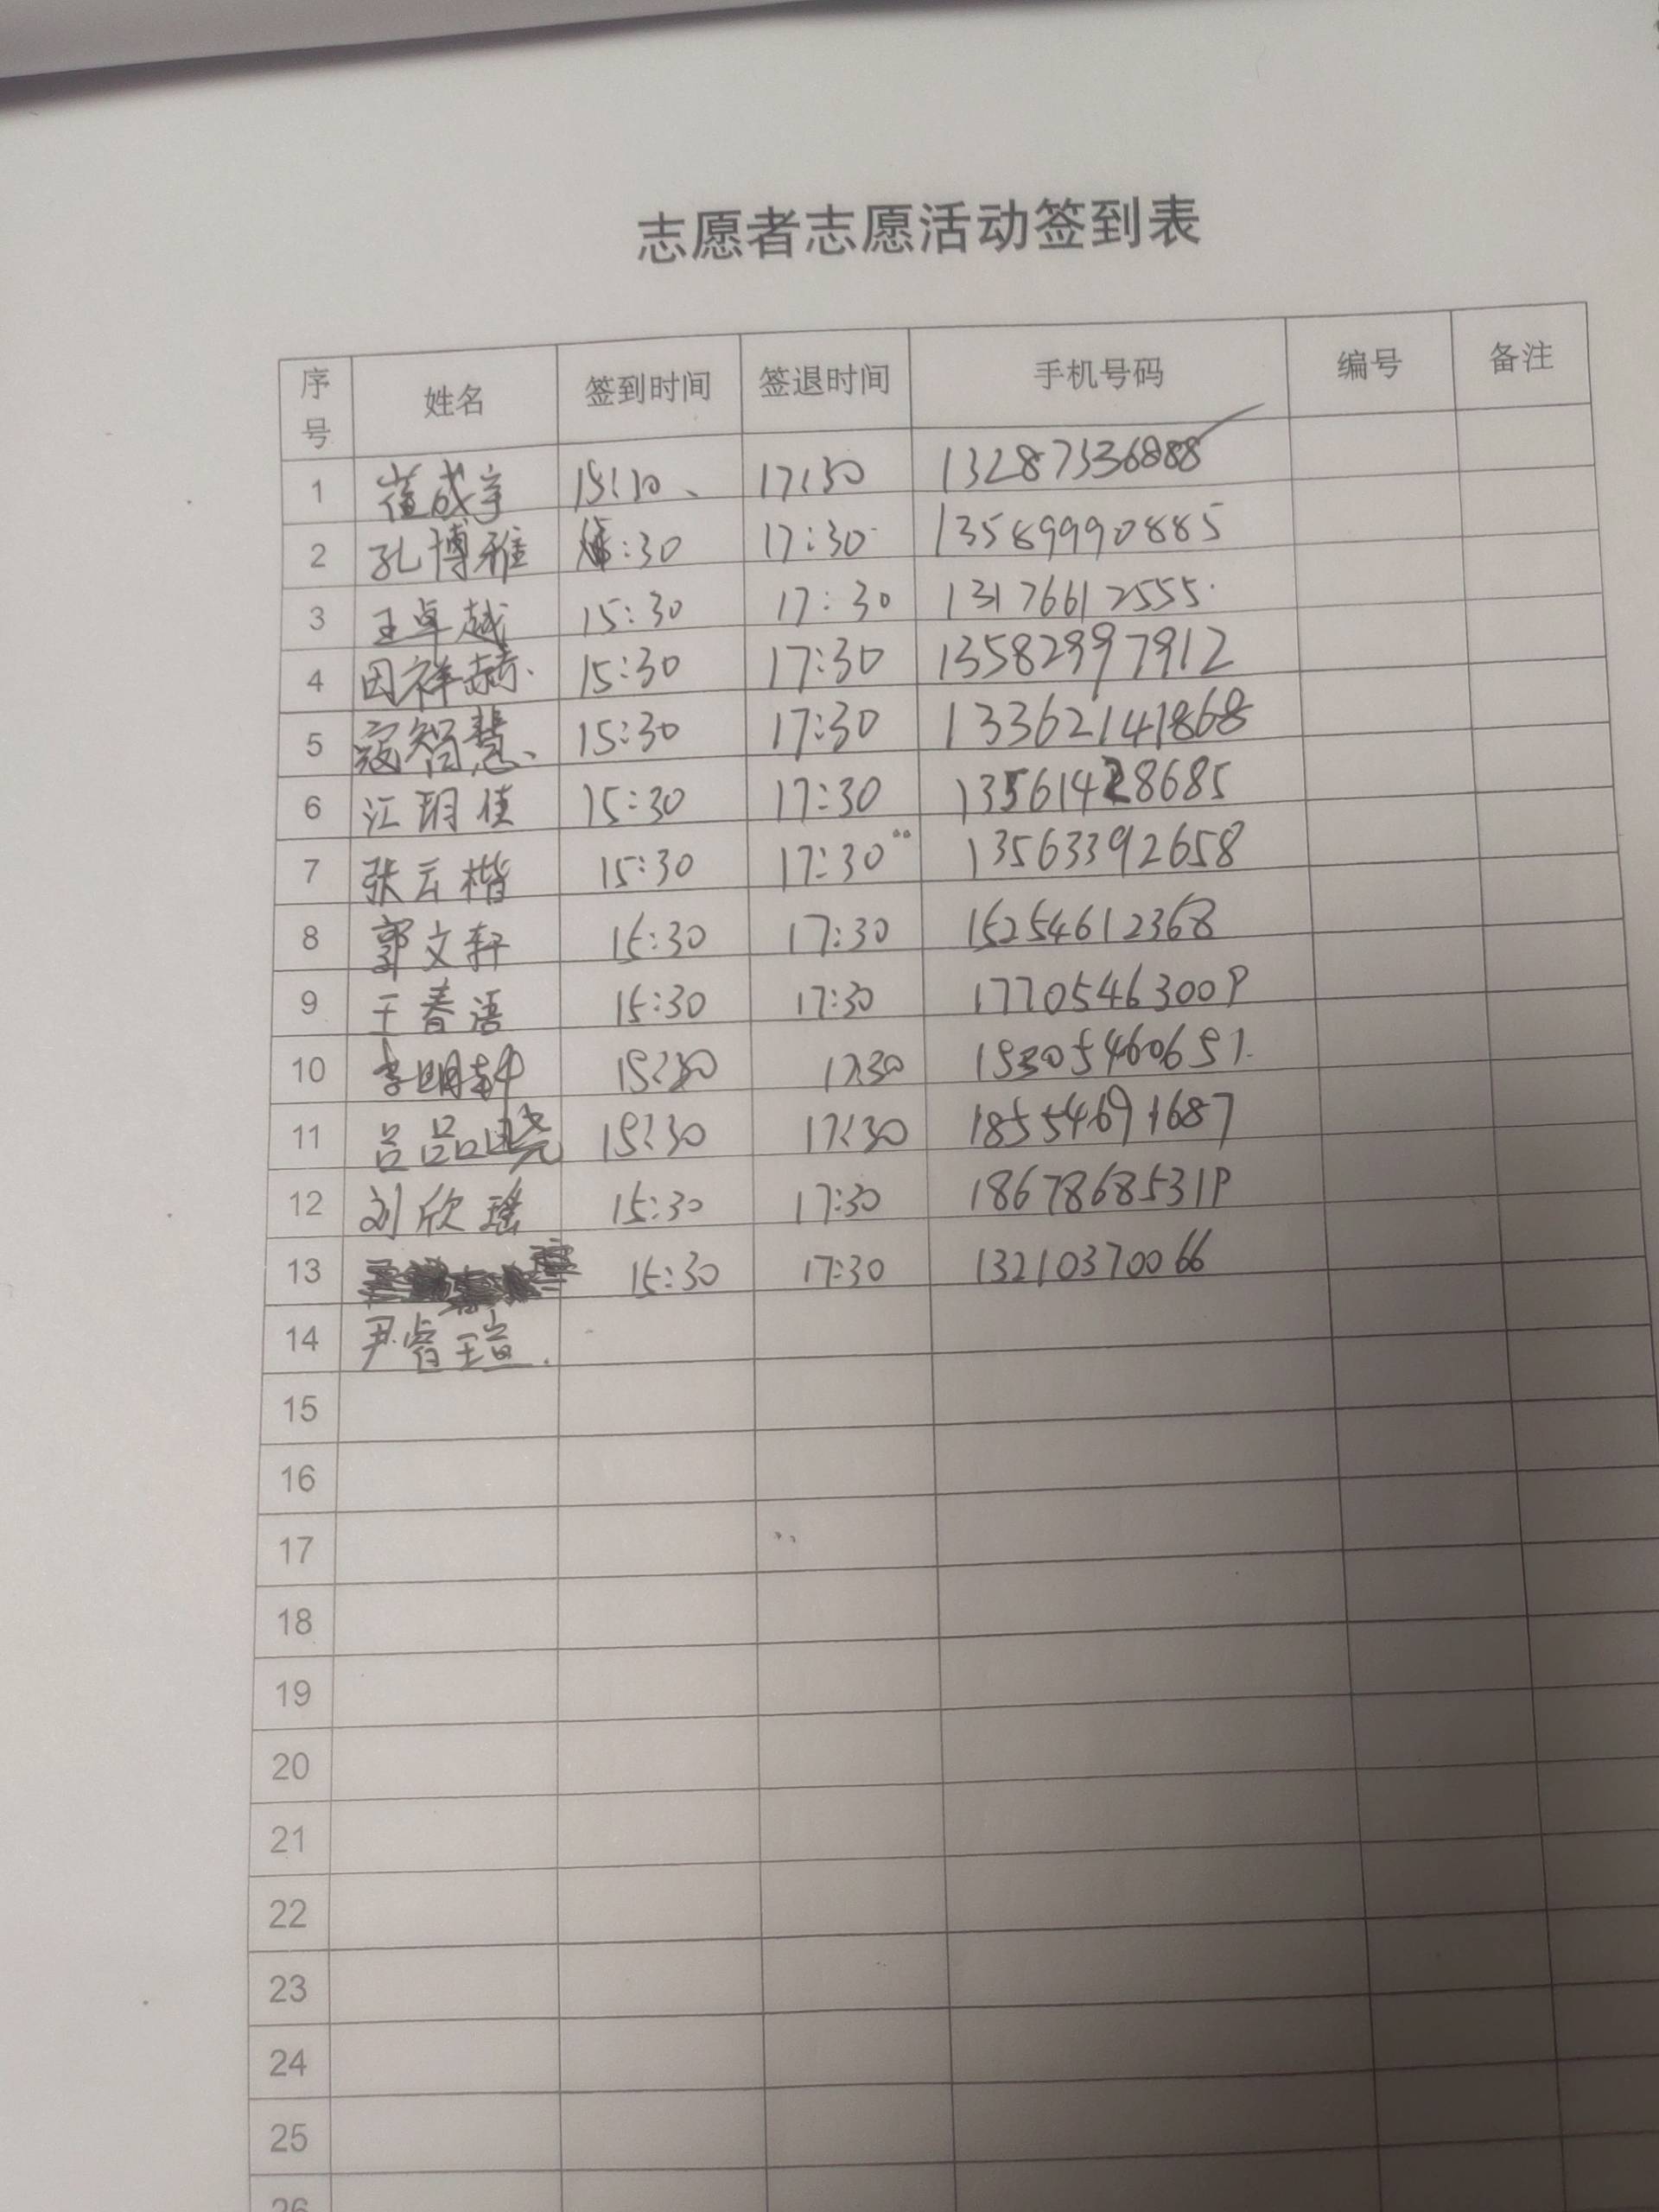 志愿者志愿活动签到表
序号 姓名 签到时间 签退时间 手机号码 编号 备注
1 崔成宇 15:10、 17:30 13287336888
2 孔博雅 :30 17:30 13589990885
3 王卓越 15:30 17:30 13176612555.
4 因祥赫. 15:30 17:30 13582997912
5 寇智慧、 15:30 17:30 13362141868
6 江玥佳 15:30 17:30 13561428685
7 张云楷 15:30 17:30 13563392658
8 郭文轩 15:30 17:30 15254612368
9 王春语 15:30 17:30 17705463009
10 李明轩 15:30 17:30 15305460651.
11 吕品晓 15:30 17:30 18554691687
12 刘欣瑶 15:30 17:30 18678685319
13 15:30 17:30 13210370066
14 尹睿瑄.
15
16
17
18
19
20
21
22
23
24
25
26